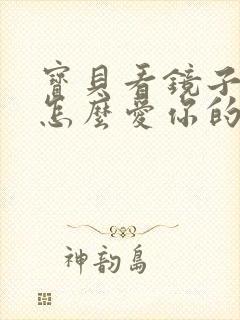 寶貝看鏡子
怎麼愛你的
神韵島